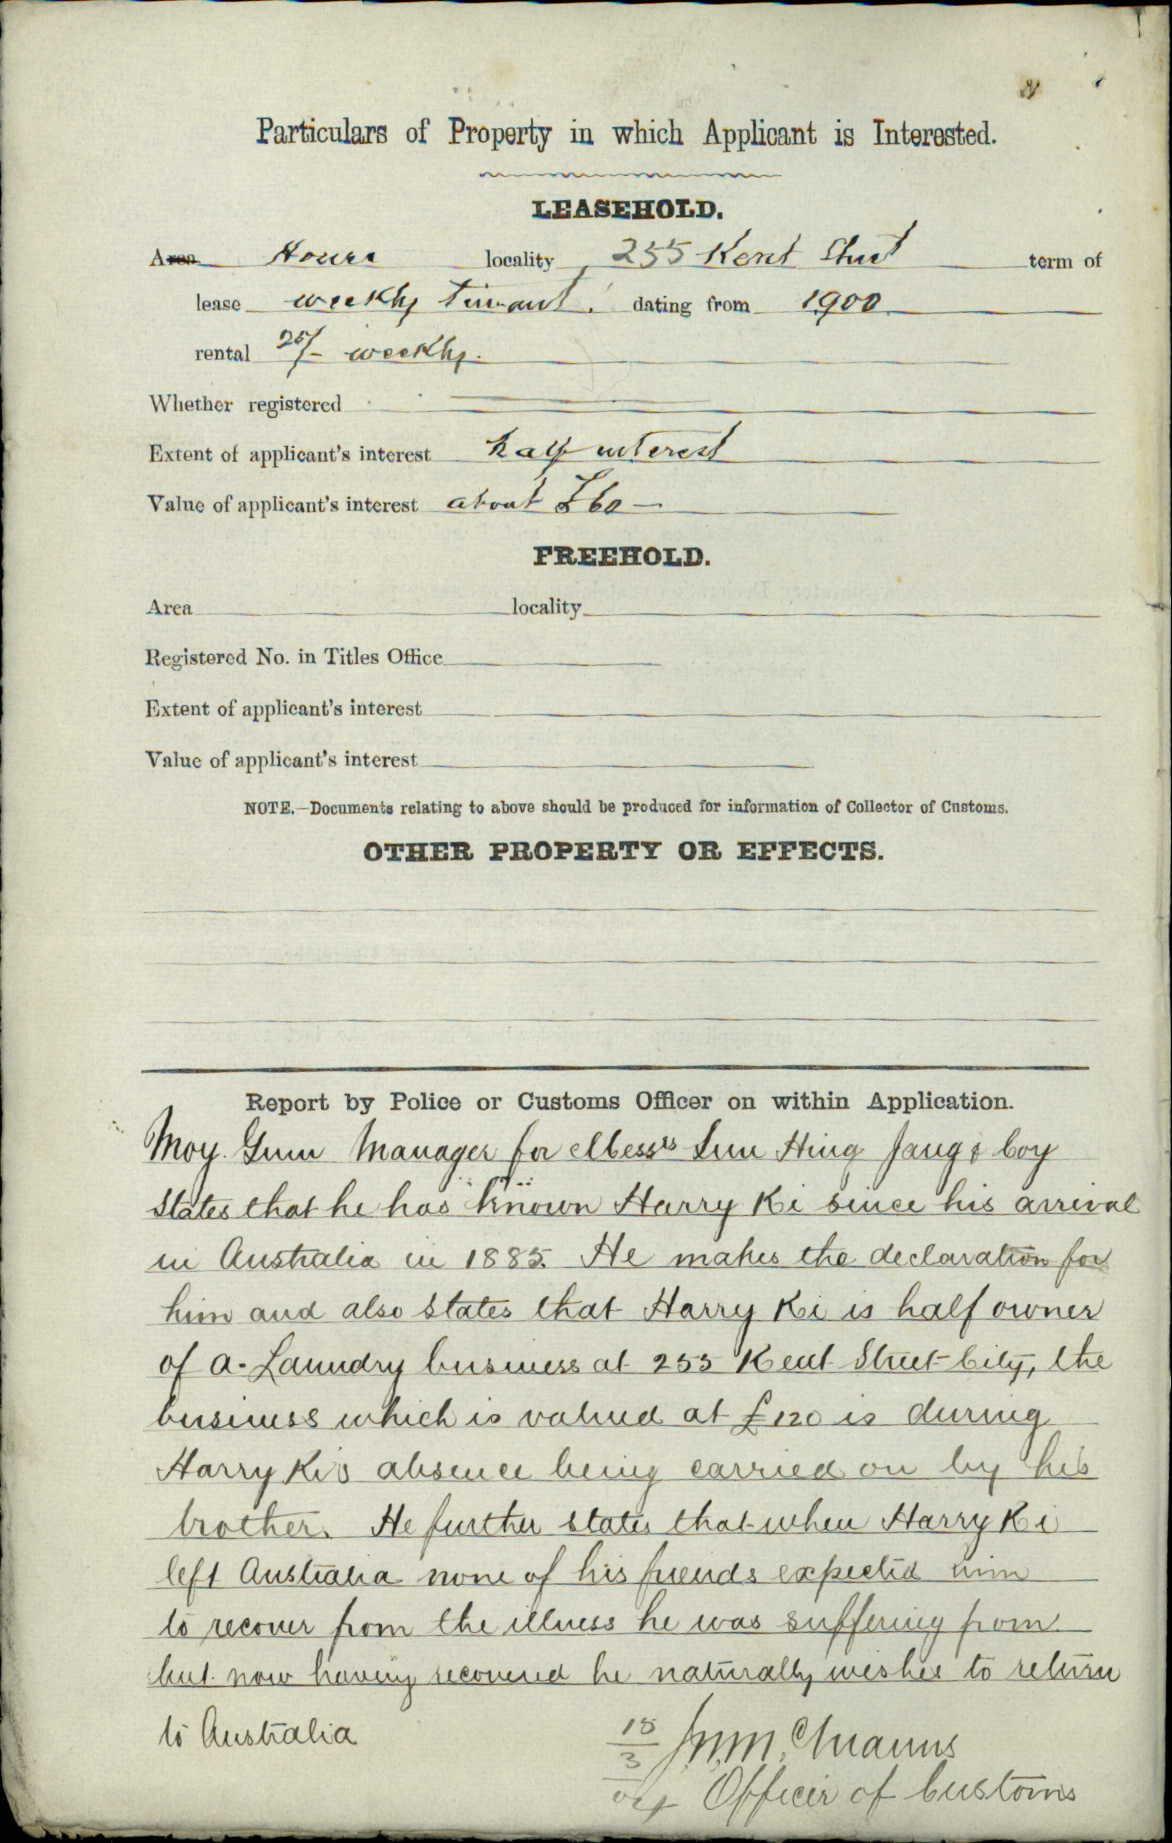 Particulars of Property in which Applicant is Interested.
LEASEHOLD.
Area House locality 255 Kent Street term of
lease weekly tenant. dating from 1900
rental 25/- weekly.
Whether registered
Extent of applicant's interest half interest
Value of applicant's interest about £60 —
FREEHOLD.
Area locality
Registered No. in Titles Office
Extent of applicant's interest
Value of applicant's interest
NOTE.—Documents relating to above should be produced for information of Collector of Customs.
OTHER PROPERTY OR EFFECTS.
Report by Police or Customs Officer on within Application.
Moy Gum Manager for Messrs Sun Hing Jang & Coy
states that he has known Harry Ki since his arrival
in Australia in 1885. He makes the declaration for
him and also states that Harry Ki is half owner
of a Laundry business at 255 Kent Street City, the
business which is valued at £120 is during
Harry Ki's absence being carried on by his
brother. He further states that when Harry Ki
left Australia none of his friends expected him
to recover from the illness he was suffering from
but now having recovered he naturally wishes to return
to Australia
18
3
Officer of Customs